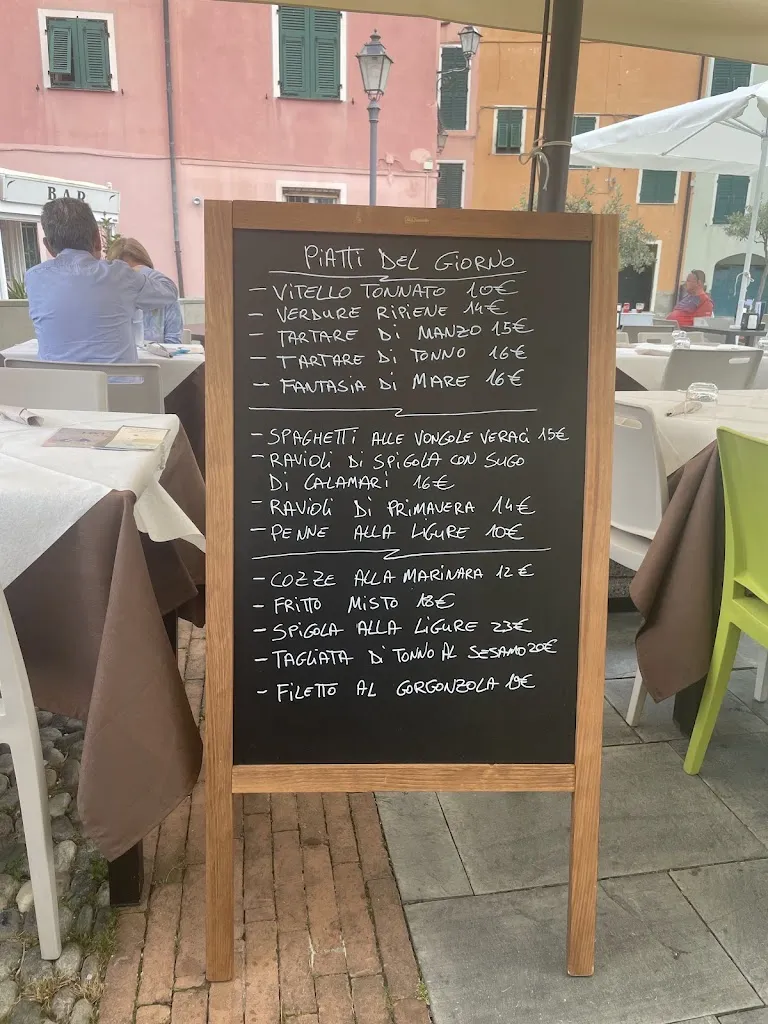 BAR
PIATTI DEL GIORNO
- VITELLO TONNATO 10€
- VERDURE RIPIENE 14€
- TARTARE DI MANZO 15€
- TARTARE DI TONNO 16€
- FANTASIA DI MARE 16€
- SPAGHETTI ALLE VONGOLE VERACI 15€
- RAVIOLI DI SPIGOLA CON SUGO
DI CALAMARI 16€
- RAVIOLI DI PRIMAVERA 14€
- PENNE ALLA LIGURE 10€
- COZZE ALLA MARINARA 12€
- FRITTO MISTO 18€
- SPIGOLA ALLA LIGURE 23€
- TAGLIATA DI TONNO AL SESAMO 20€
- FILETTO AL GORGONZOLA